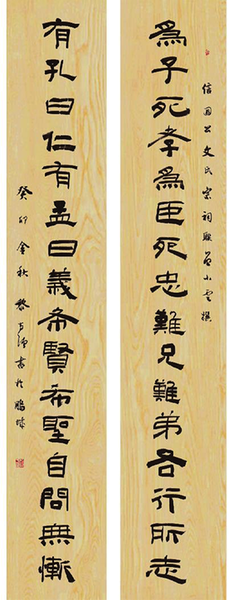 信国公文氏宗祠聯 小雲撰
爲子死孝爲臣死忠難兄難弟各行所志
有孔曰仁有孟曰義希賢希聖自問無慚
癸卯金秋 黎 書於鵬城